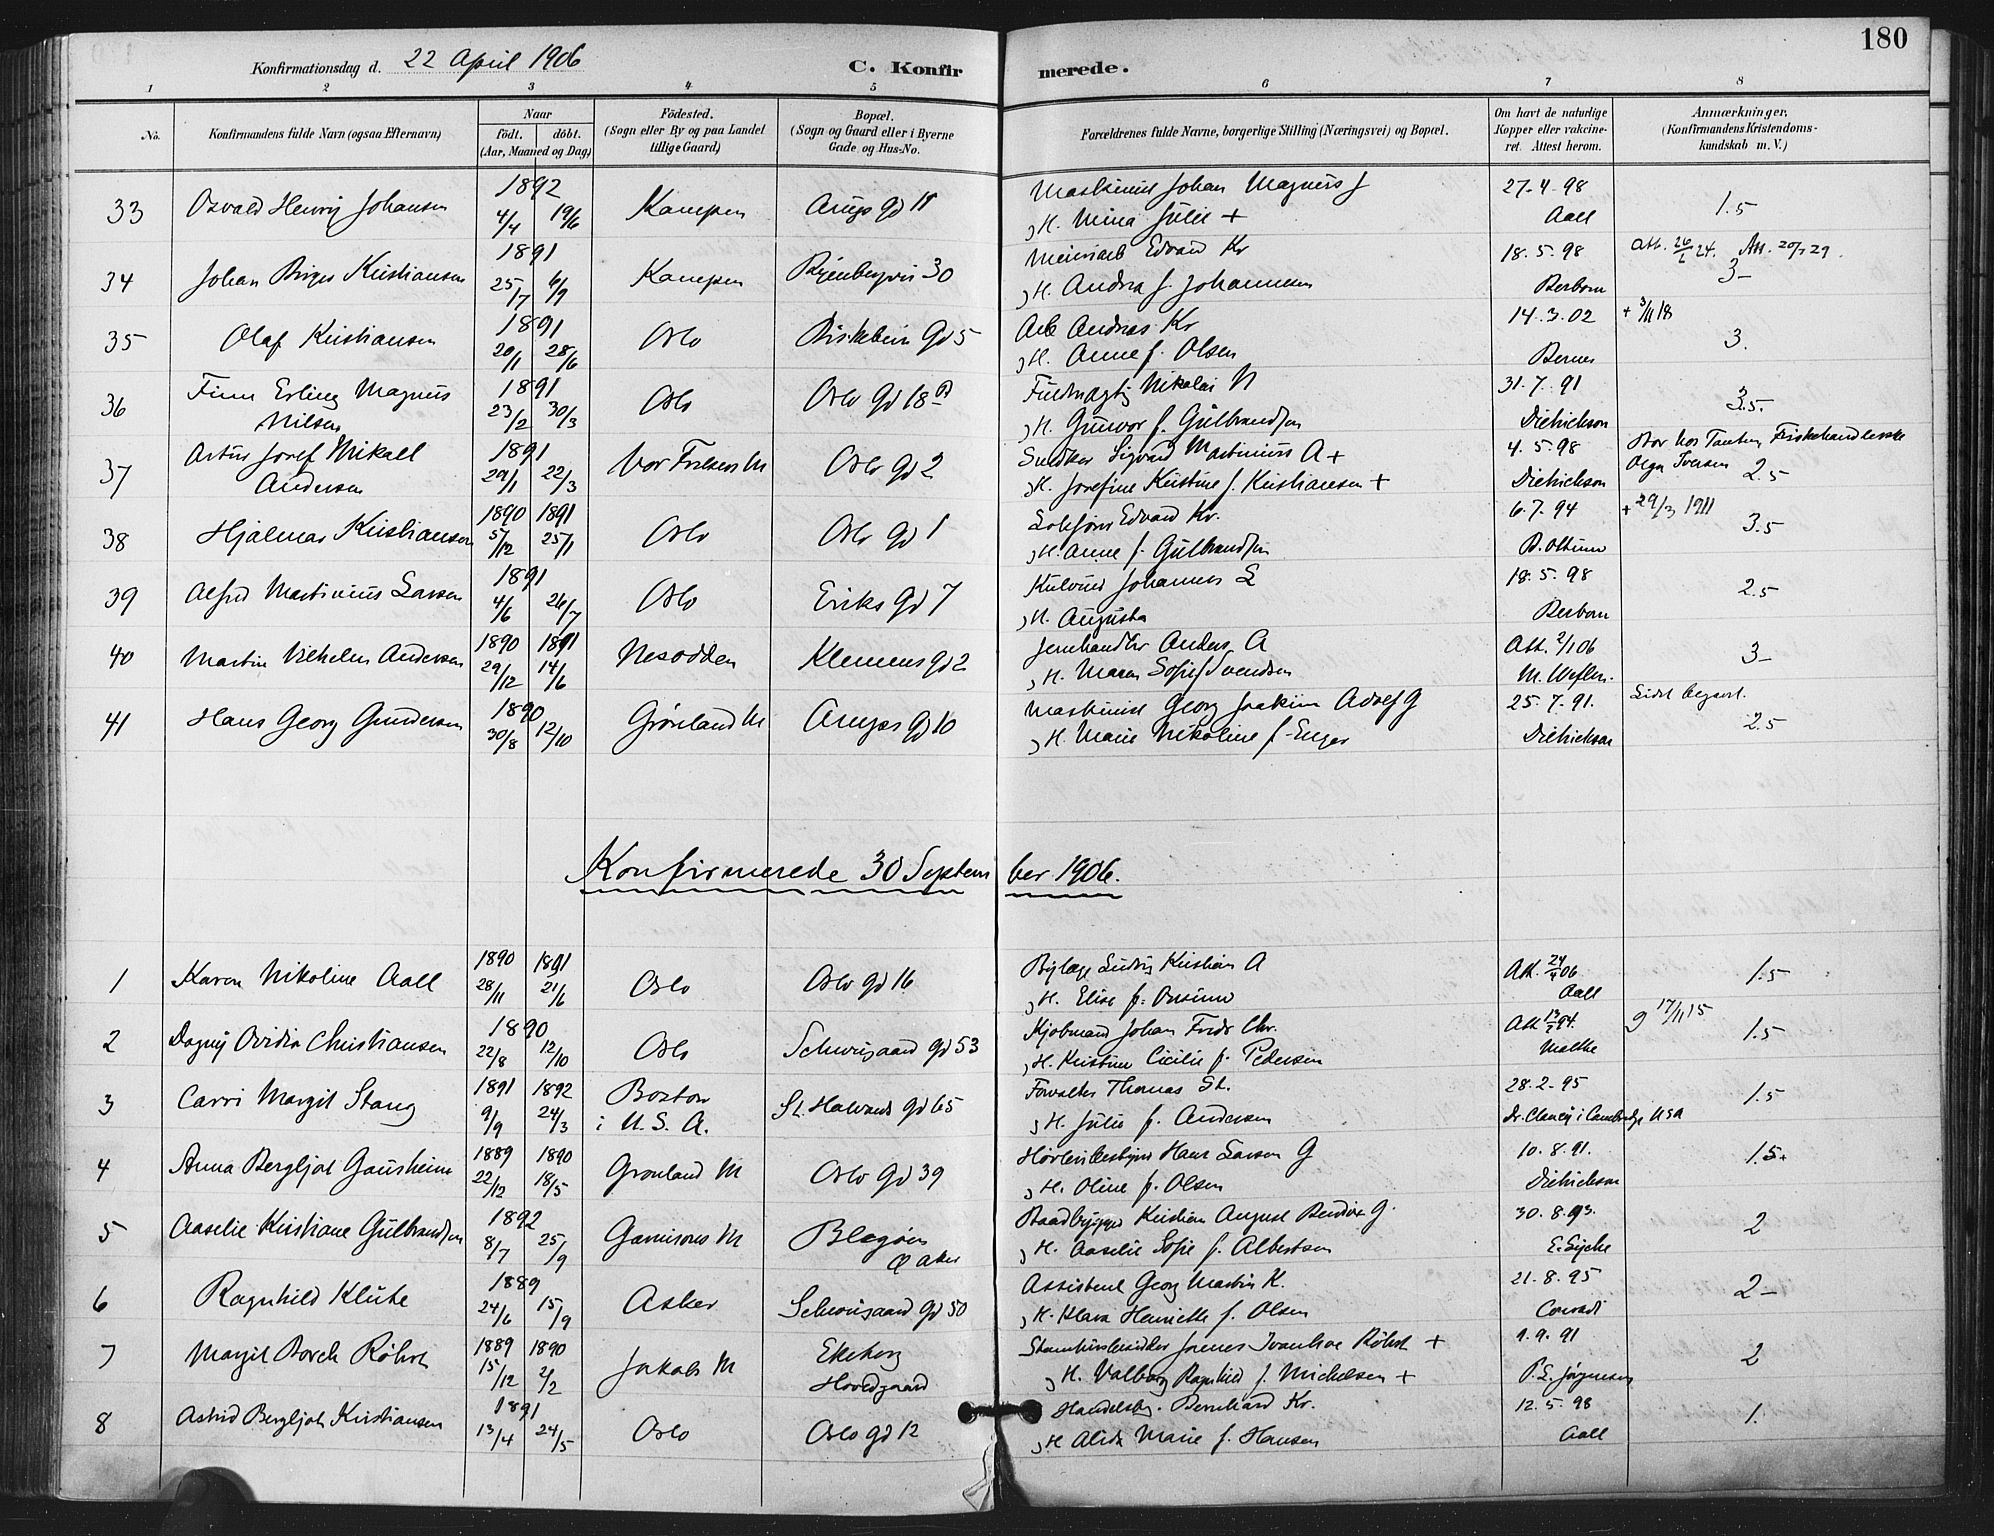 180
Konfirmationsdag d. 22 April 1906 C. Konfirmerede.
1 2 3 4 5 6 7 8
No. Konfirmandens fulde Navn (ogsaa Efternavn) Naar födt. döbt. (Aar, Maaned og Dag) Födested. (Sogn eller By og paa Landet tillige Gaard) Bopæl. (Sogn og Gaard eller i Byerne Gade og Hus-No. Forældrenes fulde Navne, borgerlige Stilling (Næringsvei) og Bopæl. Om havt de naturlige Kopper eller vakcineret. Attest herom. Anmærkninger. (Konfirmandens Kristendomskundskab m. V.)
33 Osvald Henry Johansen 1892 4/4 19/6 Kampen Arups gd 11 Maskinist Johan Magnus J 27-4-98 1.5
, H. Mina Julie + Aall
34 Johan Birger Kristiansen 1891 25/7 6/9 Kampen Ryenbergvn 30 Edvard Kr 18.5.98 3-
, H. Andrea f. Johannesen Berbom
35 Olaf Kristiansen 1891 20/1 28/6 Oslo Biskebein Gd 5 Arb Andreas Kr 14.3.02 + 3/11 18 3.
, H. Anne f. Olsen Berner
36 Finn Erling Magnus Nilsen 1891 23/2 30/3 Oslo Oslo Gd 18 Fuldmægtig Nikolai N 31.7.91 3.5.
, H. Gunvor f. Gulbrandsen Dietrichson
37 Artur Josef Mikael Andersen 1891 29/1 22/3 Vor Frelsers M Oslo Gd 2 Snedker Sigvard Martinius A + 4.5.98 Bor hos Tanten Fiskehandlerske Olga Iversen 2.5
, H. Josefine Kristine f. Kristiansen + Dietrichson
38 Hjalmar Kristiansen 1890 1891 5/12 25/1 Oslo Oslo Gd 1 Edvard Kr. 6.7.94 + 29/3 1911 3.5
, H. Anne f. Gulbrandsen
39 Alfred Martinius Larsen 1891 4/6 26/7 Oslo Eriks Gd 7 Johannes L 18.5.98 2.5
, H. Augusta Berbom
40 Martin Vilhelm Andersen 1890 1891 29/12 14/6 Nesodden Klemens gd 2 Jernhandler Anders A Att. 2/1 06 3-
, H. Maren Sofie f Svendsen
41 Hans Georg Gundersen 1890 30/8 12/10 Grönland M Arups Gd 10 Maskinist Georg Joakim Adolf G 25.7.91. 2.5
, H. Marie Nikoline f. Enger Dietrichson
Konfirmerede 30 September 1906.
1 Karen Nikoline Aall 1890 1891 28/11 21/6 Oslo Oslo gd 16 Bylæge Ludvig Kristian A Att. 24/4 06. 1.5
, H. Elise f. Aall
2 Dagny Ovidia Christiansen 1890 22/8 12/10 Oslo Schweigaard gd 53 Kjøbmand Johan Fredr Chr. 1.5
, H. Kristine Cicilie f. Pedersen Malthe
3 Carri Margit Stang 1891 1892 9/9 24/3 Boston i U.S.A. St. Halvards gd 65 Forvalter Thomas St. 28.2.95 1.5
, H. Julie f. Andersen Dr. Clancy i Cambridge USA
4 Anna Bergljot Gausheim 1889 1890 22/12 18/5 Grönland M Oslo Gd 39 Hans Larsen G 10.8.91. 1.5
, H. Oline f. Olsen Dietrichson
5 Aaselie Kristiane Gulbrandsen 1892 8/7 25/9 Garnisons M Blegöen Ö Aker Baadbygger Kristian August G. 30.8.93. 2
, H. Aaselie Sofie f. Albertsen
6 Ragnhild Klüte 1889 24/6 15/9 Asker Schweigaard gd 50 Assistent Georg Martin K. 21.8.95 2-
, H. Klara Henriette f. Olsen Conradi
7 Margit Borch Röhrt 1889 1890 15/12 2/2 Jakobs M Ekeberg Hovedgaard Ivanhoe Röhrt + 1.9.91 2
, H. Valborg Ragnhild f. Michelsen + P.L. Jørgensen
8 Astrid Bergljot Kristiansen 1891 13/4 24/5 Oslo Oslo gd 12 Handelsb. Bernhard Kr. 12.5.98 1.
, H Alida Marie f. Hansen Aall